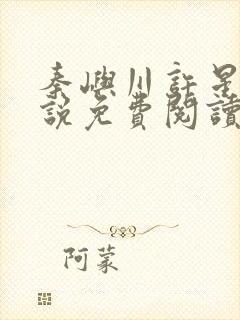 秦嶼川許是
說免費閱讀
阿蒙